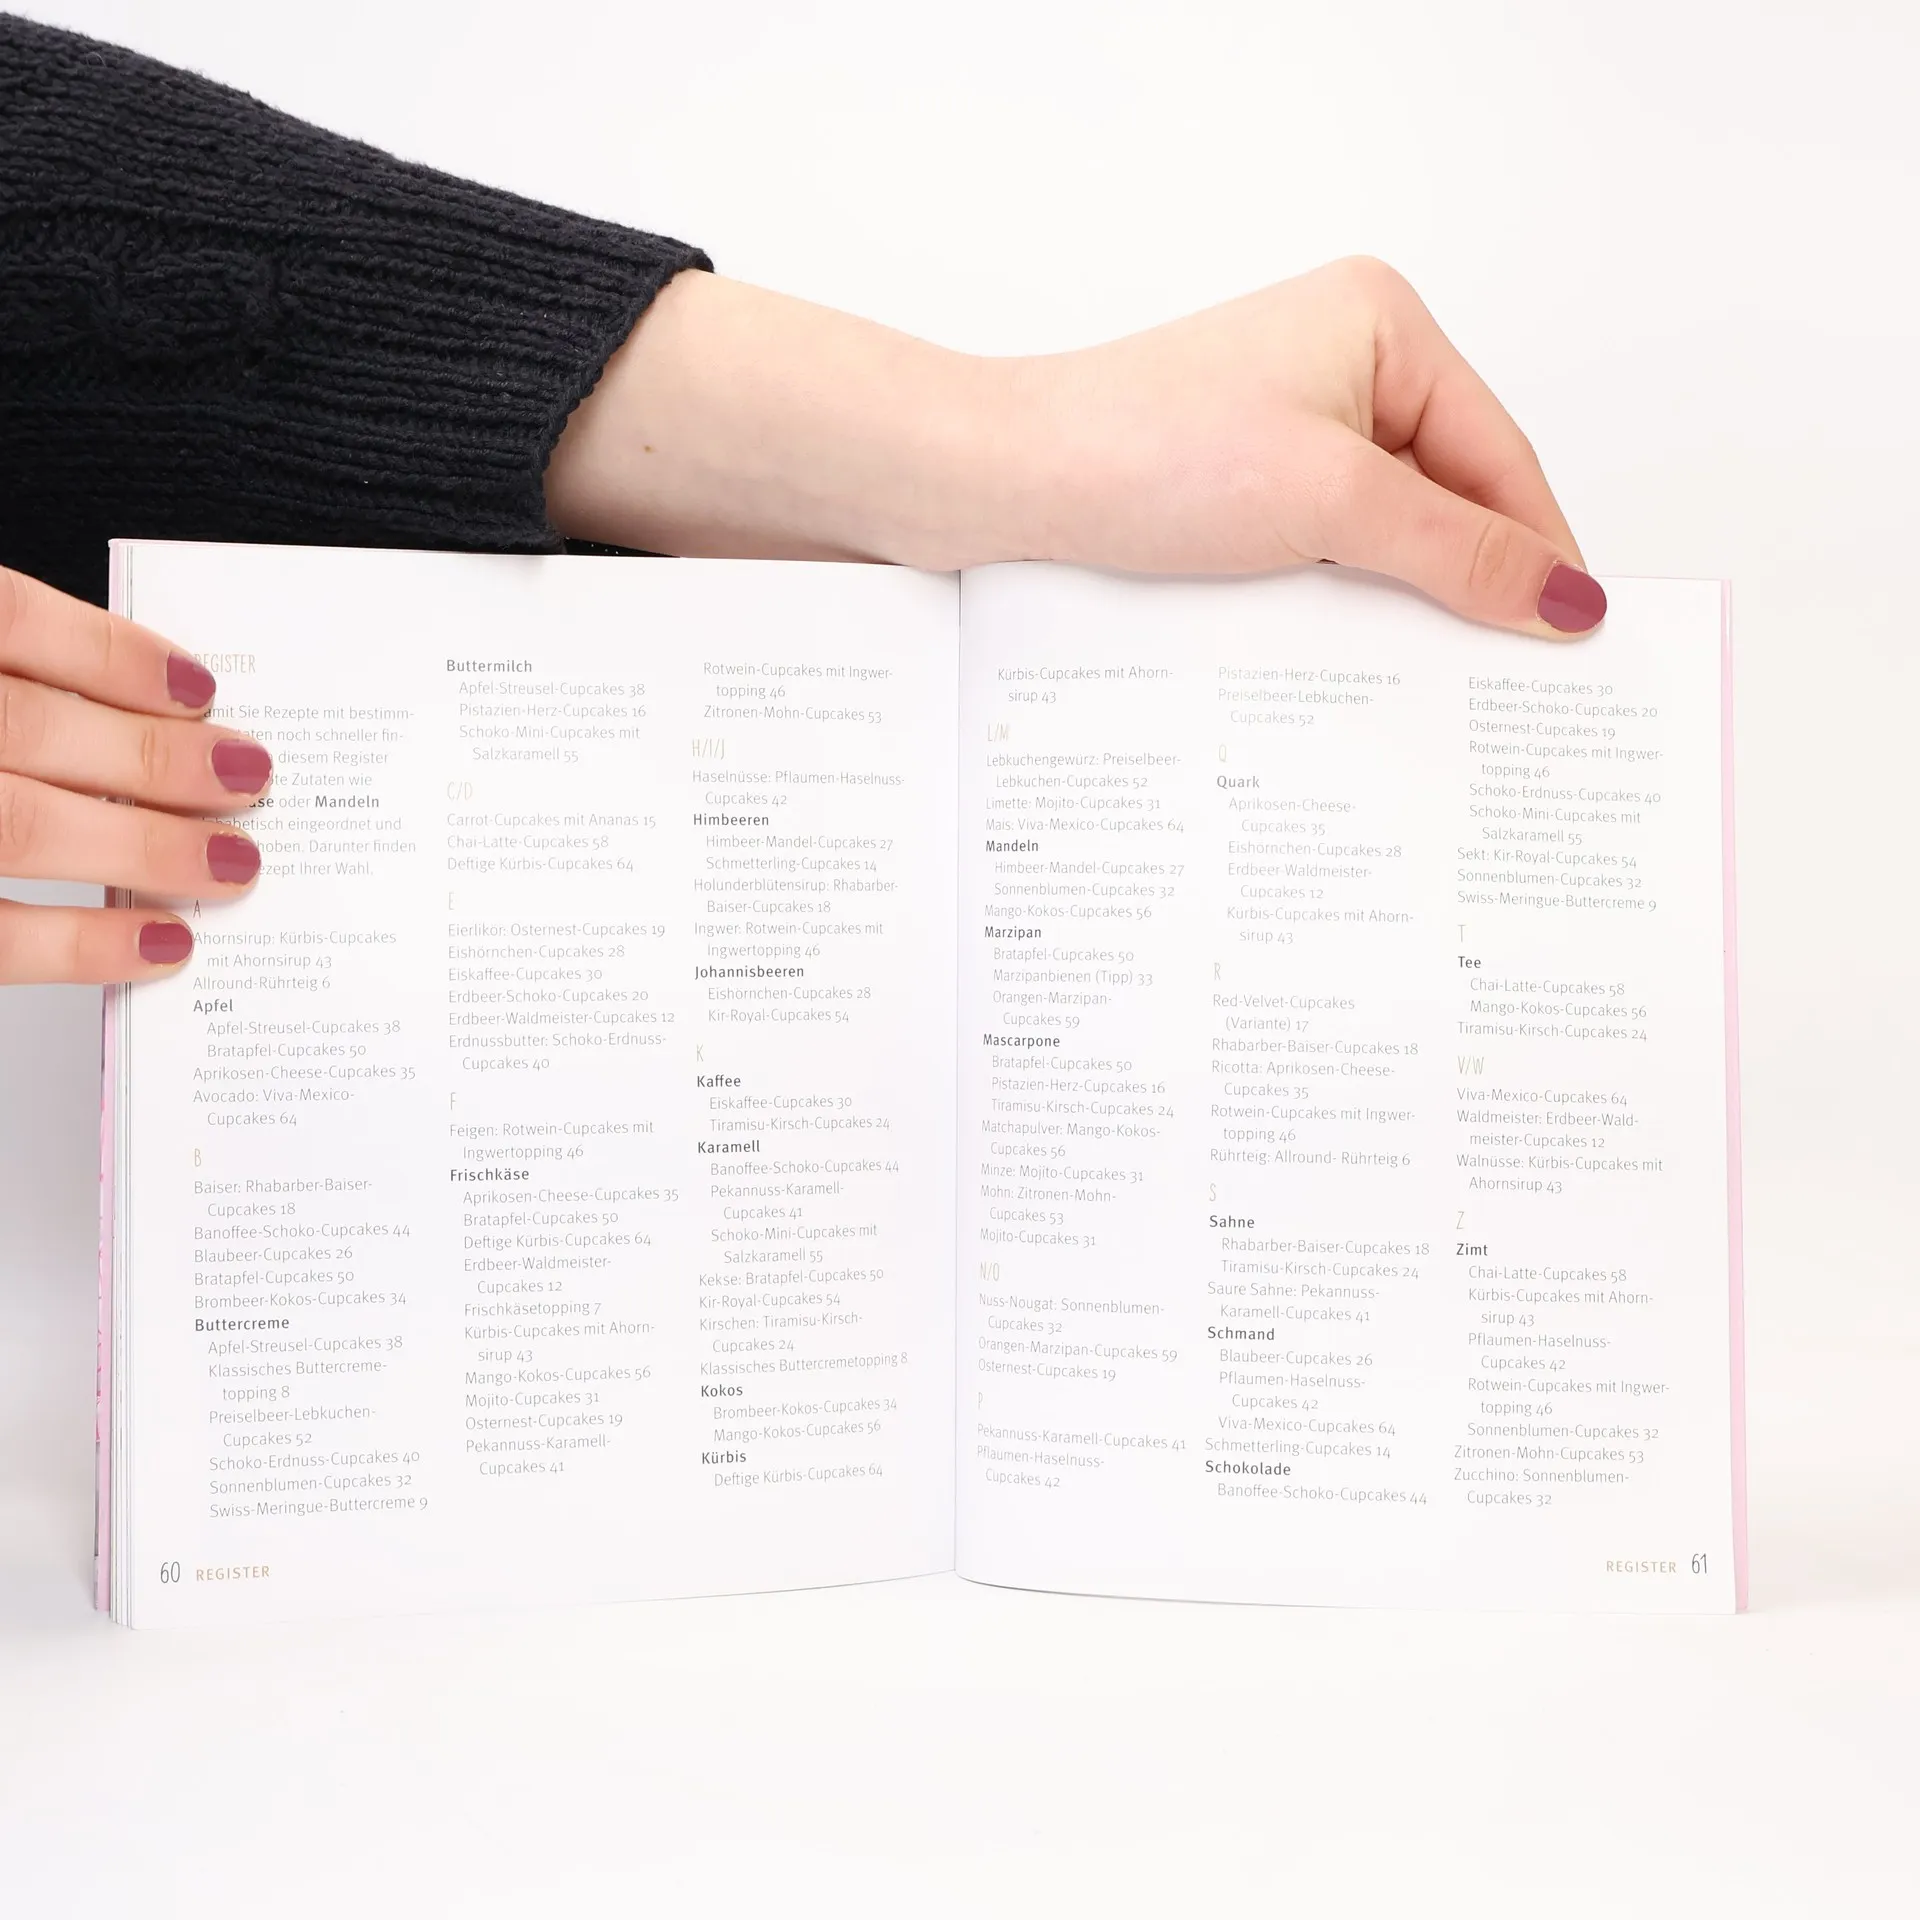 REGISTER
amit Sie Rezepte mit bestimm-
aten noch schneller fin-
diesem Register
te Zutaten wie
äse oder Mandeln
betisch eingeordnet und
hoben. Darunter finden
ezept Ihrer Wahl.
A
Ahornsirup: Kürbis-Cupcakes
mit Ahornsirup 43
Allround-Rührteig 6
Apfel
Apfel-Streusel-Cupcakes 38
Bratapfel-Cupcakes 50
Aprikosen-Cheese-Cupcakes 35
Avocado: Viva-Mexico-
Cupcakes 64
B
Baiser: Rhabarber-Baiser-
Cupcakes 18
Banoffee-Schoko-Cupcakes 44
Blaubeer-Cupcakes 26
Bratapfel-Cupcakes 50
Brombeer-Kokos-Cupcakes 34
Buttercreme
Apfel-Streusel-Cupcakes 38
Klassisches Buttercreme-
topping 8
Preiselbeer-Lebkuchen-
Cupcakes 52
Schoko-Erdnuss-Cupcakes 40
Sonnenblumen-Cupcakes 32
Swiss-Meringue-Buttercreme 9
Buttermilch
Apfel-Streusel-Cupcakes 38
Pistazien-Herz-Cupcakes 16
Schoko-Mini-Cupcakes mit
Salzkaramell 55
C/D
Carrot-Cupcakes mit Ananas 15
Chai-Latte-Cupcakes 58
Deftige Kürbis-Cupcakes 64
E
Eierlikör: Osternest-Cupcakes 19
Eishörnchen-Cupcakes 28
Eiskaffee-Cupcakes 30
Erdbeer-Schoko-Cupcakes 20
Erdbeer-Waldmeister-Cupcakes 12
Erdnussbutter: Schoko-Erdnuss-
Cupcakes 40
F
Feigen: Rotwein-Cupcakes mit
Ingwertopping 46
Frischkäse
Aprikosen-Cheese-Cupcakes 35
Bratapfel-Cupcakes 50
Deftige Kürbis-Cupcakes 64
Erdbeer-Waldmeister-
Cupcakes 12
Frischkäsetopping 7
Kürbis-Cupcakes mit Ahorn-
sirup 43
Mango-Kokos-Cupcakes 56
Mojito-Cupcakes 31
Osternest-Cupcakes 19
Pekannuss-Karamell-
Cupcakes 41
Rotwein-Cupcakes mit Ingwer-
topping 46
Zitronen-Mohn-Cupcakes 53
H/I/J
Haselnüsse: Pflaumen-Haselnuss-
Cupcakes 42
Himbeeren
Himbeer-Mandel-Cupcakes 27
Schmetterling-Cupcakes 14
Holunderblütensirup: Rhabarber-
Baiser-Cupcakes 18
Ingwer: Rotwein-Cupcakes mit
Ingwertopping 46
Johannisbeeren
Eishörnchen-Cupcakes 28
Kir-Royal-Cupcakes 54
K
Kaffee
Eiskaffee-Cupcakes 30
Tiramisu-Kirsch-Cupcakes 24
Karamell
Banoffee-Schoko-Cupcakes 44
Pekannuss-Karamell-
Cupcakes 41
Schoko-Mini-Cupcakes mit
Salzkaramell 55
Kekse: Bratapfel-Cupcakes 50
Kir-Royal-Cupcakes 54
Kirschen: Tiramisu-Kirsch-
Cupcakes 24
Klassisches Buttercremetopping 8
Kokos
Brombeer-Kokos-Cupcakes 34
Mango-Kokos-Cupcakes 56
Kürbis
Deftige Kürbis-Cupcakes 64
60 REGISTER
Kürbis-Cupcakes mit Ahorn-
sirup 43
L/M
Lebkuchengewürz: Preiselbeer-
Lebkuchen-Cupcakes 52
Limette: Mojito-Cupcakes 31
Mais: Viva-Mexico-Cupcakes 64
Mandeln
Himbeer-Mandel-Cupcakes 27
Sonnenblumen-Cupcakes 32
Mango-Kokos-Cupcakes 56
Marzipan
Bratapfel-Cupcakes 50
Marzipanbienen (Tipp) 33
Orangen-Marzipan-
Cupcakes 59
Mascarpone
Bratapfel-Cupcakes 50
Pistazien-Herz-Cupcakes 16
Tiramisu-Kirsch-Cupcakes 24
Matchapulver: Mango-Kokos-
Cupcakes 56
Minze: Mojito-Cupcakes 31
Mohn: Zitronen-Mohn-
Cupcakes 53
Mojito-Cupcakes 31
N/O
Nuss-Nougat: Sonnenblumen-
Cupcakes 32
Orangen-Marzipan-Cupcakes 59
Osternest-Cupcakes 19
P
Pekannuss-Karamell-Cupcakes 41
Pflaumen-Haselnuss-
Cupcakes 42
Pistazien-Herz-Cupcakes 16
Preiselbeer-Lebkuchen-
Cupcakes 52
Q
Quark
Aprikosen-Cheese-
Cupcakes 35
Eishörnchen-Cupcakes 28
Erdbeer-Waldmeister-
Cupcakes 12
Kürbis-Cupcakes mit Ahorn-
sirup 43
R
Red-Velvet-Cupcakes
(Variante) 17
Rhabarber-Baiser-Cupcakes 18
Ricotta: Aprikosen-Cheese-
Cupcakes 35
Rotwein-Cupcakes mit Ingwer-
topping 46
Rührteig: Allround- Rührteig 6
S
Sahne
Rhabarber-Baiser-Cupcakes 18
Tiramisu-Kirsch-Cupcakes 24
Saure Sahne: Pekannuss-
Karamell-Cupcakes 41
Schmand
Blaubeer-Cupcakes 26
Pflaumen-Haselnuss-
Cupcakes 42
Viva-Mexico-Cupcakes 64
Schmetterling-Cupcakes 14
Schokolade
Banoffee-Schoko-Cupcakes 44
Eiskaffee-Cupcakes 30
Erdbeer-Schoko-Cupcakes 20
Osternest-Cupcakes 19
Rotwein-Cupcakes mit Ingwer-
topping 46
Schoko-Erdnuss-Cupcakes 40
Schoko-Mini-Cupcakes mit
Salzkaramell 55
Sekt: Kir-Royal-Cupcakes 54
Sonnenblumen-Cupcakes 32
Swiss-Meringue-Buttercreme 9
T
Tee
Chai-Latte-Cupcakes 58
Mango-Kokos-Cupcakes 56
Tiramisu-Kirsch-Cupcakes 24
V/W
Viva-Mexico-Cupcakes 64
Waldmeister: Erdbeer-Wald-
meister-Cupcakes 12
Walnüsse: Kürbis-Cupcakes mit
Ahornsirup 43
Z
Zimt
Chai-Latte-Cupcakes 58
Kürbis-Cupcakes mit Ahorn-
sirup 43
Pflaumen-Haselnuss-
Cupcakes 42
Rotwein-Cupcakes mit Ingwer-
topping 46
Sonnenblumen-Cupcakes 32
Zitronen-Mohn-Cupcakes 53
Zucchino: Sonnenblumen-
Cupcakes 32
REGISTER 61